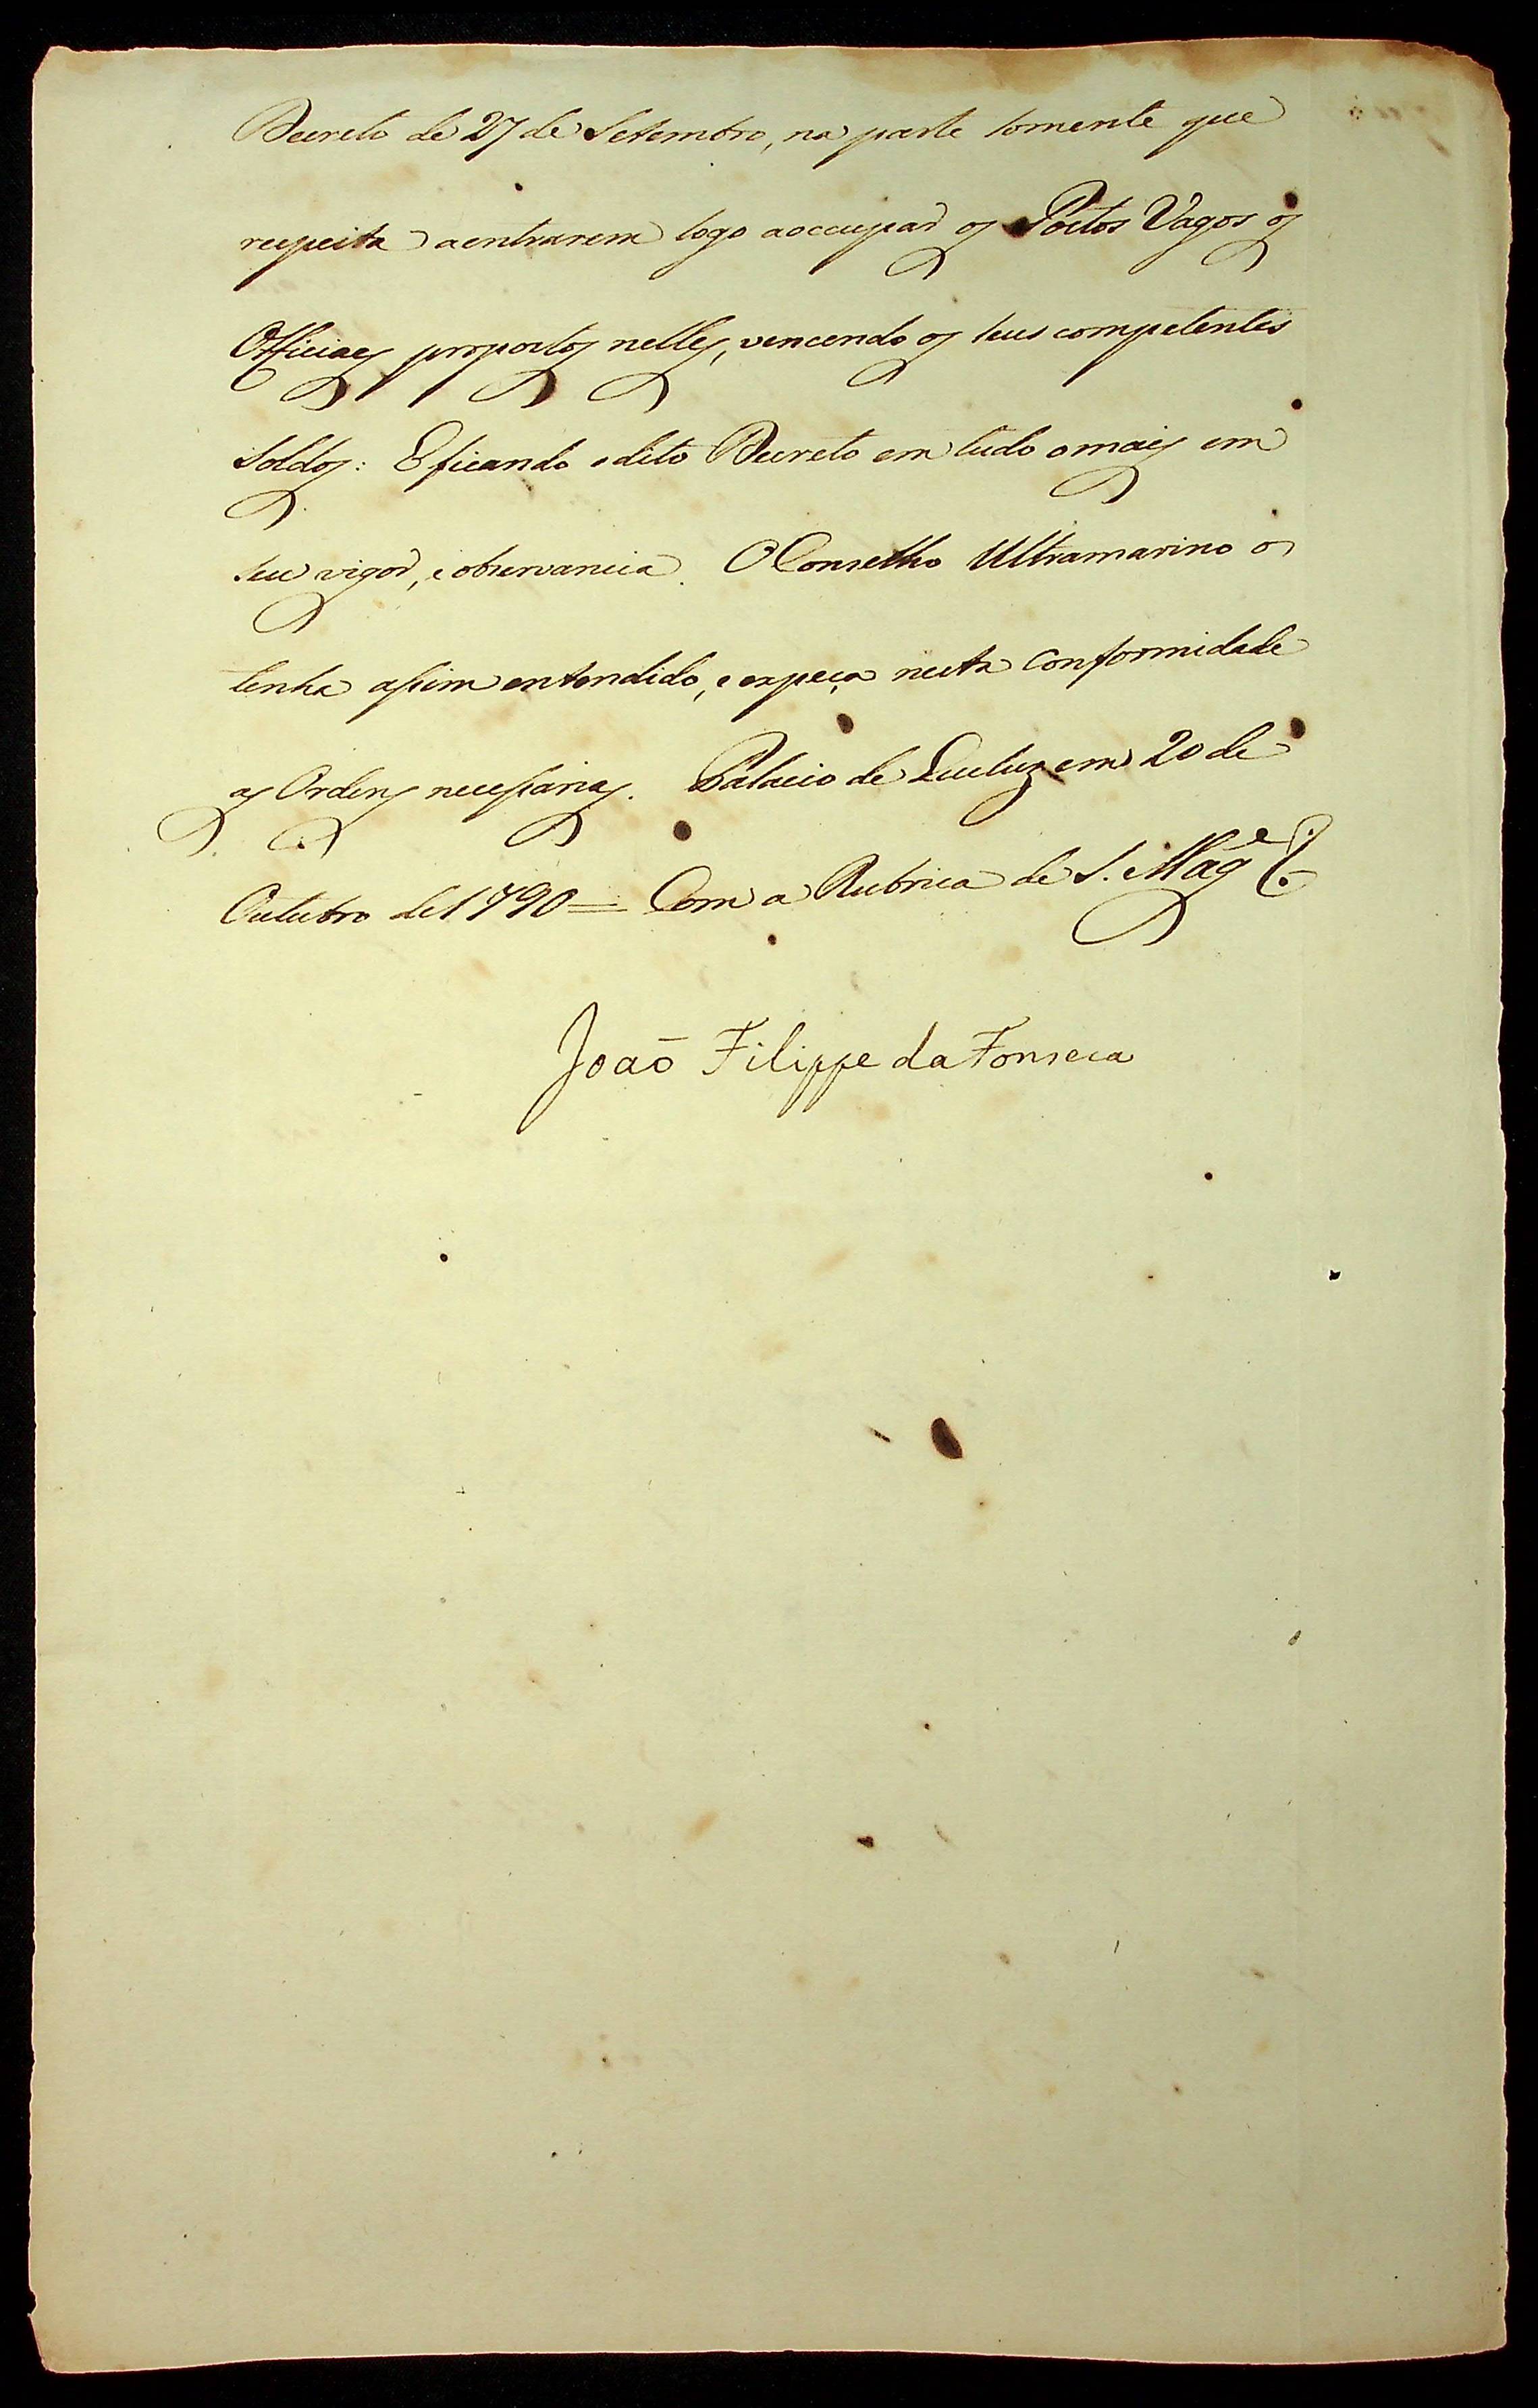 Decreto de 27 de Setembro, na parte somente que
respeita a entrarem logo a occupar os Postos Vagos os
Officiaes propostos nelles, vencendo os seus competentes
Soldos: E ficando o dito Decreto em tudo o mais em
seu vigor, e observancia. O Conselho Ultramarino o
tenha assim entendido, e expeça nesta conformidade
as Ordens necessarias. Palacio de Queluz em 20 de
Outubro de 1790 = Com a Rubrica de S. Mag.e
João Filippe da Fonseca